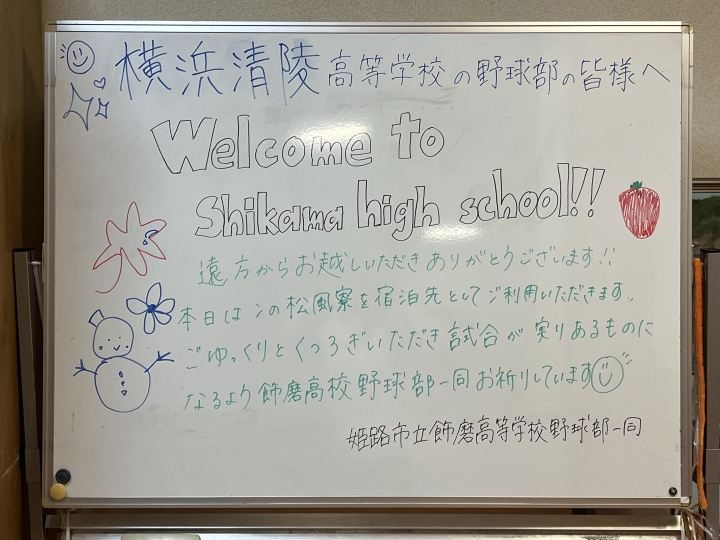 横浜清陵高等学校の野球部の皆様へ
Welcome to
Shikama high school!!
遠方からお越しいただきありがとうございます!!
本日はこの松風寮を宿泊先としてご利用いただきます。
ごゆっくりとくつろぎいただき試合が実りあるものに
なるよう飾磨高校野球部一同お祈りしています
姫路市立飾磨高等学校野球部一同